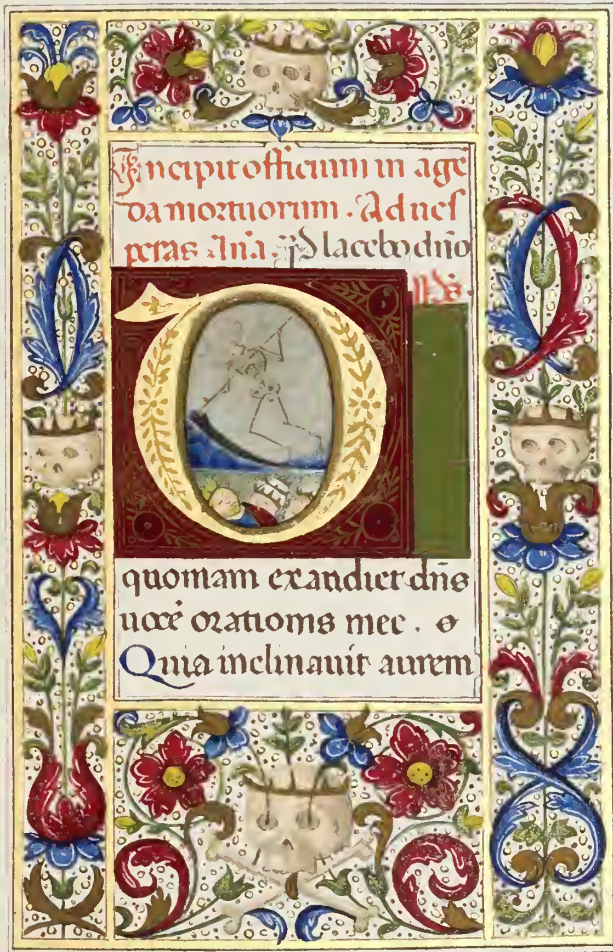 Incipit officium in agē
da mortuorum. Ad ves
peras Añā. Placebo dño
ps.
D
quoniam exaudiet dñs
vocē orationis mee. 
Quia inclinavit aurem